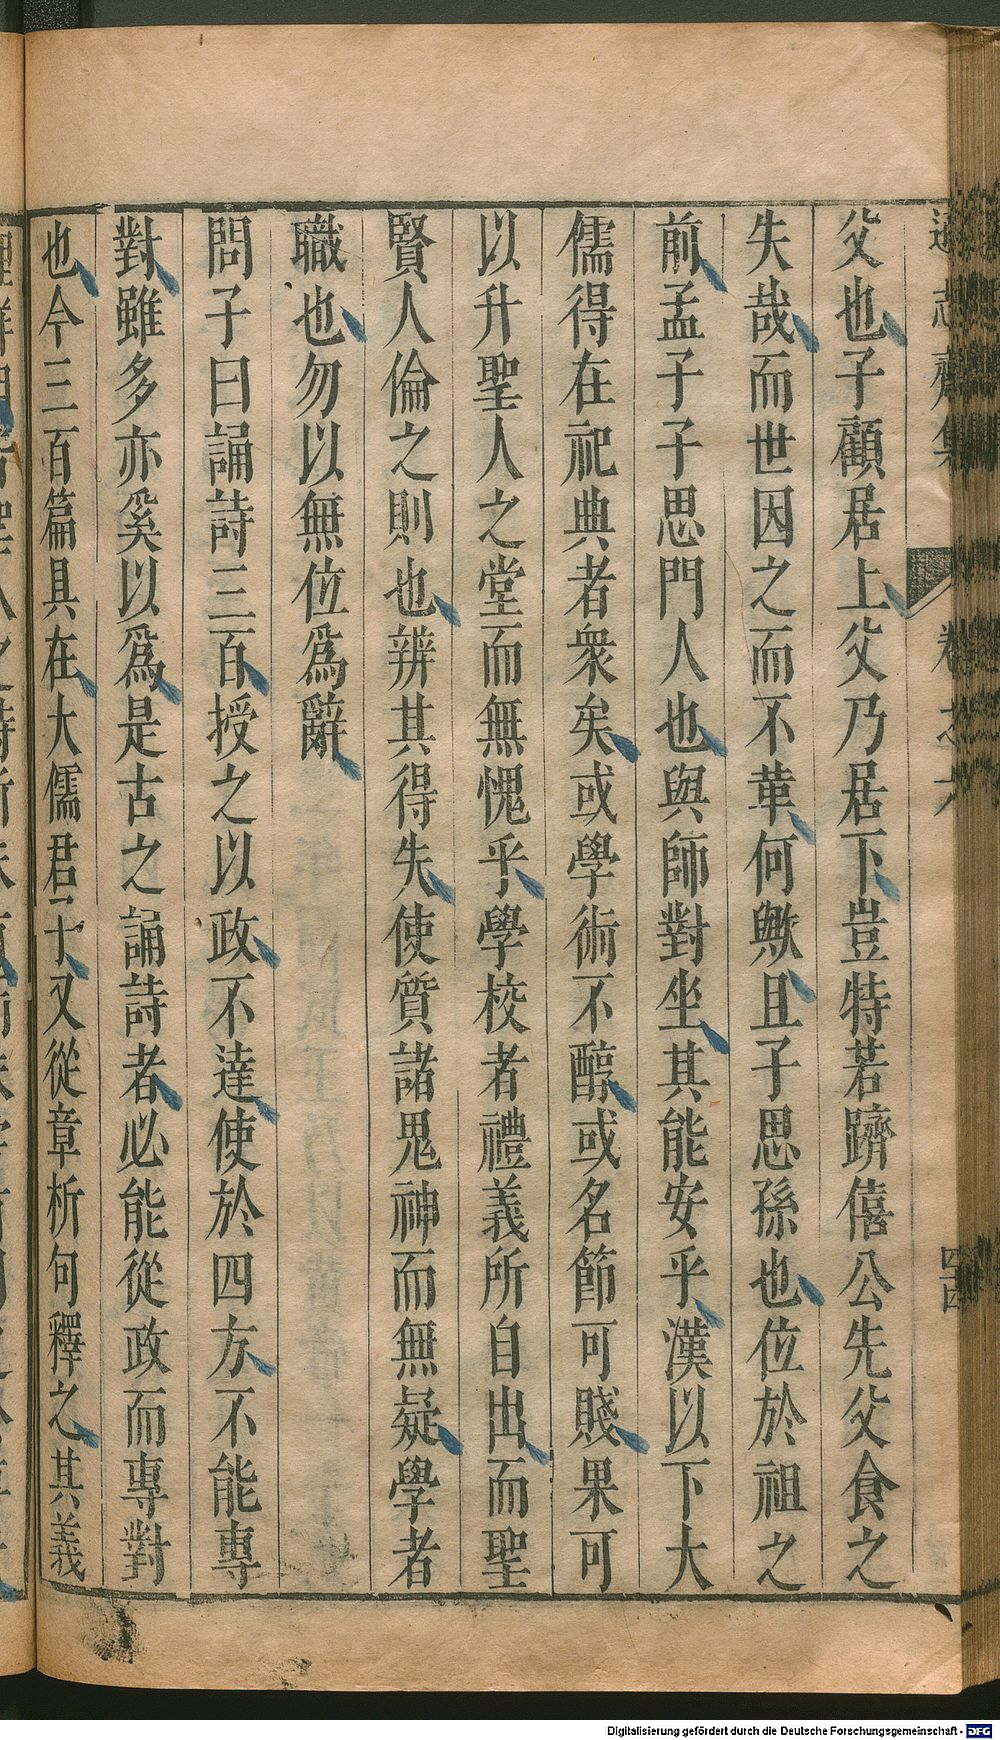 遜志齋集 卷之六 四十四
父也子顧居上父乃居下豈特若躋僖公先父食之
失哉而世因之而不革何歟且子思孫也位於祖之
前孟子子思門人也與師對坐其能安乎漢以下大
儒得在祀典者衆矣或學術不醇或名節可賤果可
以升聖人之堂而無愧乎學校者禮義所自出而聖
賢人倫之則也辨其得失使質諸鬼神而無疑學者
職也勿以無位爲辭
問子曰誦詩三百授之以政不達使於四方不能專
對雖多亦奚以爲是古之誦詩者必能從政而專對
也今三百篇具在大儒君子又從章析句釋之其義
Digitalisierung gefördert durch die Deutsche Forschungsgemeinschaft - DFG